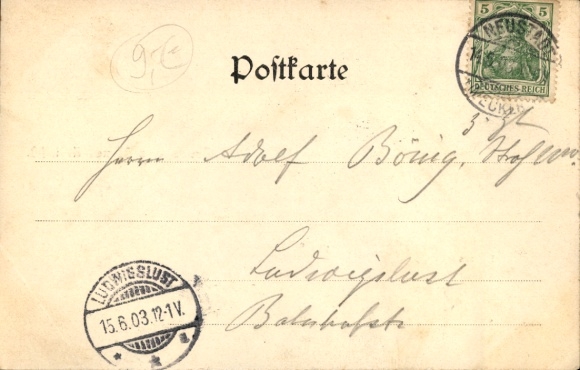 5
5
NEUSTADT
DEUTSCHES REICH
9,-
Postkarte
z. Zt.
Herrn Adolf Bönig,
Ludwigslust
Bahnhofstr
LUDWIGSLUST
15.6.03.12-1V.